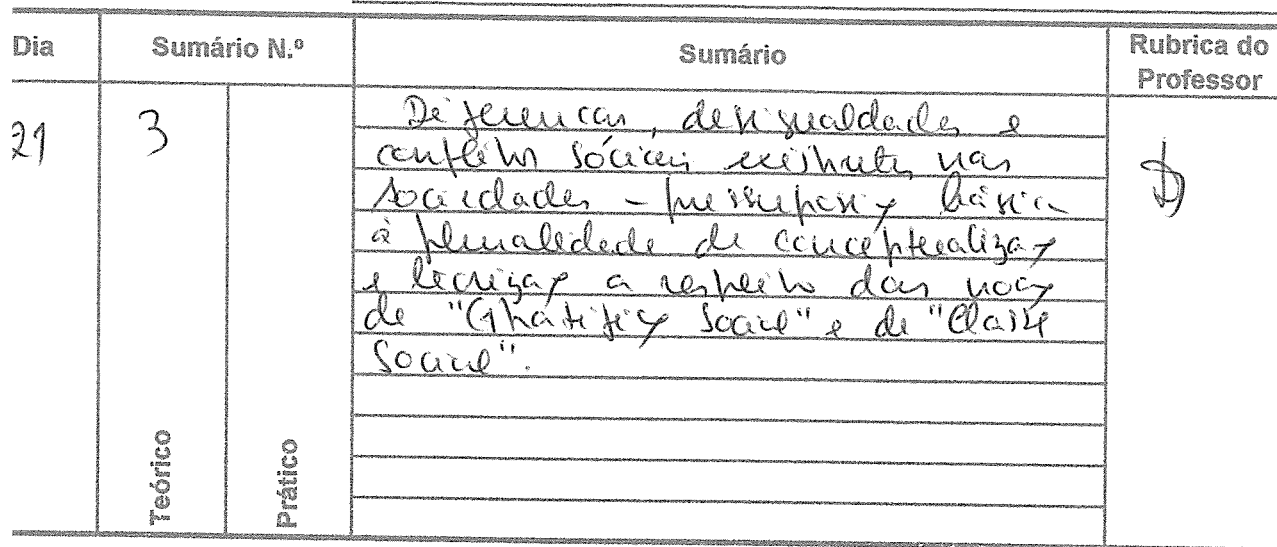 Dia
Sumário N.º
Sumário
Rubrica do
Professor
21
3
Diferenças, desigualdades e
conflitos sociais existentes nas
sociedades - pressuposição básica
à pluralidade de conceptualização
e teorização a respeito das noções
de "Estratificação Social" e de "Classe
Social".
Teórico
Prático